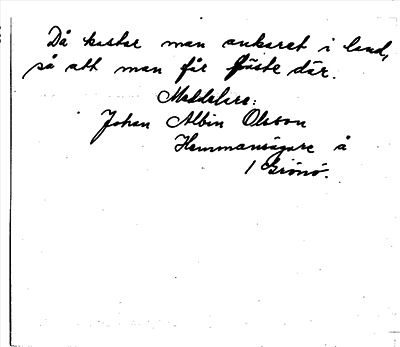 Då kastar man ankaret i land,
så att man får fäste där.
Meddelare:
Johan Albin Olsson
Hemmansägare å
1 Grönö.